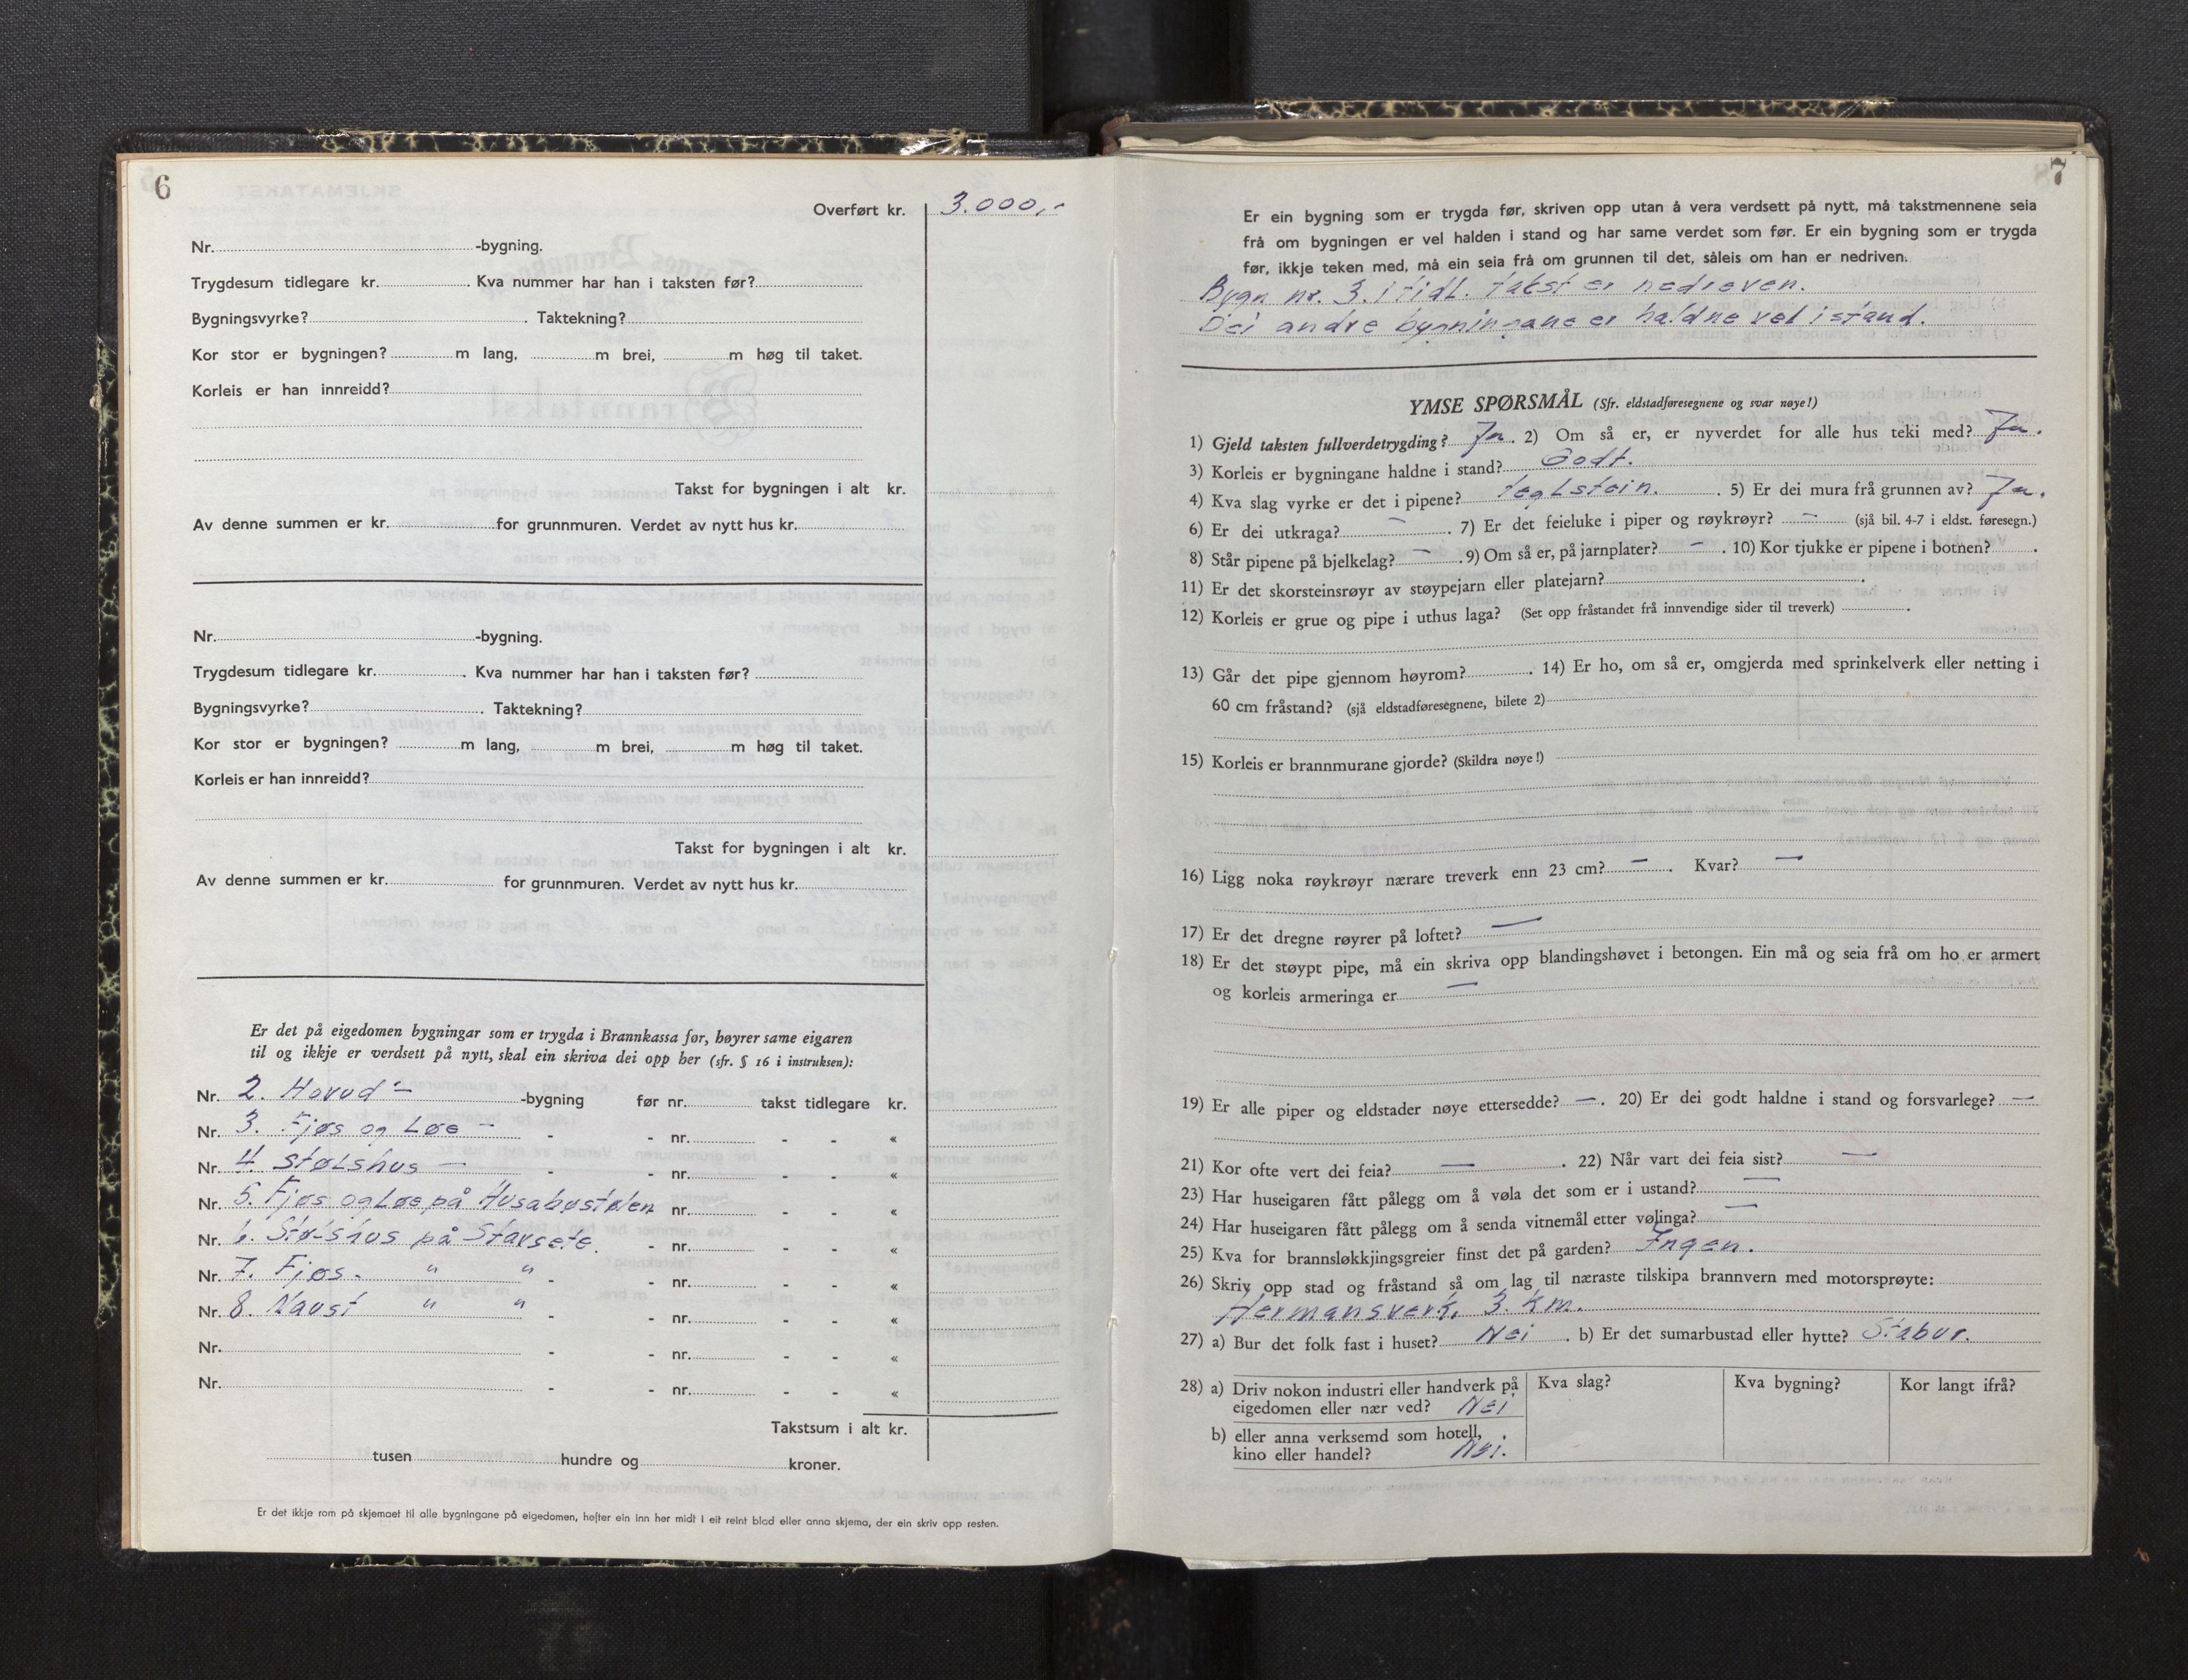 6
Overført kr. 3.000,-
Nr. -bygning.
Trygdesum tidlegare kr. . Kva nummer har han i taksten før?
Bygningsvyrke? . Taktekning?
Kor stor er bygningen? m lang, m brei, m høg til taket.
Korleis er han innreidd?
Takst for bygningen i alt kr.
Av denne summen er kr. for grunnmuren. Verdet av nytt hus kr.
Nr. -bygning.
Trygdesum tidlegare kr. . Kva nummer har han i taksten før?
Bygningsvyrke? . Taktekning?
Kor stor er bygningen? m lang, m brei, m høg til taket.
Korleis er han innreidd?
Takst for bygningen i alt kr.
Av denne summen er kr. for grunnmuren. Verdet av nytt hus kr.
Er det på eigedomen bygningar som er trygda i Brannkassa før, høyrer same eigaren
til og ikkje er verdsett på nytt, skal ein skriva dei opp her (sfr. § 16 i instruksen):
Nr. 2. Hovud - -bygning før nr. takst tidlegare kr.
Nr. 3. Fjøs og Løe - - - nr. - - «
Nr. 4. Stølshus - - - nr. - - «
Nr. 5. Fjøs og Løe på Husabøstølen nr. - - «
Nr. 6. Stølshus på Stavsete. - nr. - - «
Nr. 7. Fjøs. " " - - nr. - - «
Nr. 8. Naust " " - - nr. - - «
Nr. - - nr. - - «
Nr. - - nr. - - «
Takstsum i alt kr.
tusen hundre og kroner.
Er det ikkje rom på skjemaet til alle bygningane på eigedomen, hefter ein inn her midt i eit reint blad eller anna skjema, der ein skriv opp resten.
7
Er ein bygning som er trygda før, skriven opp utan å vera verdsett på nytt, må takstmennene seia
frå om bygningen er vel halden i stand og har same verdet som før. Er ein bygning som er trygda
før, ikkje teken med, må ein seia frå om grunnen til det, såleis om han er nedriven.
Bygn nr. 3. i tidl. takst er nedreven.
Dei andre bygningane er haldne vel i stand.
YMSE SPØRSMÅL (Sfr. eldstadføresegnene og svar nøye!)
1) Gjeld taksten fullverdetrygding? Ja. 2) Om så er, er nyverdet for alle hus teki med? Ja.
3) Korleis er bygningane haldne i stand? Godt.
4) Kva slag vyrke er det i pipene? teglstein. . 5) Er dei mura frå grunnen av? Ja.
6) Er dei utkraga? - . 7) Er det feieluke i piper og røykrøyr? - (sjå bil. 4-7 i eldst. føresegn.)
8) Står pipene på bjelkelag? - . 9) Om så er, på jarnplater? - . 10) Kor tjukke er pipene i botnen? .
11) Er det skorsteinsrøyr av støypejarn eller platejarn? .
12) Korleis er grue og pipe i uthus laga? (Set opp fråstandet frå innvendige sider til treverk) .
13) Går det pipe gjennom høyrom? . 14) Er ho, om så er, omgjerda med sprinkelverk eller netting i
60 cm fråstand? (sjå eldstadføresegnene, bilete 2)
15) Korleis er brannmurane gjorde? (Skildra nøye!)
16) Ligg noka røykrøyr nærare treverk enn 23 cm? - . Kvar? -
17) Er det dregne røyrer på loftet? -
18) Er det støypt pipe, må ein skriva opp blandingshøvet i betongen. Ein må og seia frå om ho er armert
og korleis armeringa er -
19) Er alle piper og eldstader nøye ettersedde? - . 20) Er dei godt haldne i stand og forsvarlege? -
21) Kor ofte vert dei feia? - . 22) Når vart dei feia sist? -
23) Har huseigaren fått pålegg om å vøla det som er i ustand? -
24) Har huseigaren fått pålegg om å senda vitnemål etter vølinga? -
25) Kva for brannsløkkjingsgreier finst det på garden? Ingen.
26) Skriv opp stad og fråstand så om lag til næraste tilskipa brannvern med motorsprøyte:
Hermansverk, 3. km.
27) a) Bur det folk fast i huset? Nei . b) Er det sumarbustad eller hytte? Stabur.
28) a) Driv nokon industri eller handverk på
eigedomen eller nær ved? Nei
Kva slag?
Kva bygning?
Kor langt ifrå?
b) eller anna verksemd som hotell,
kino eller handel? Nei.